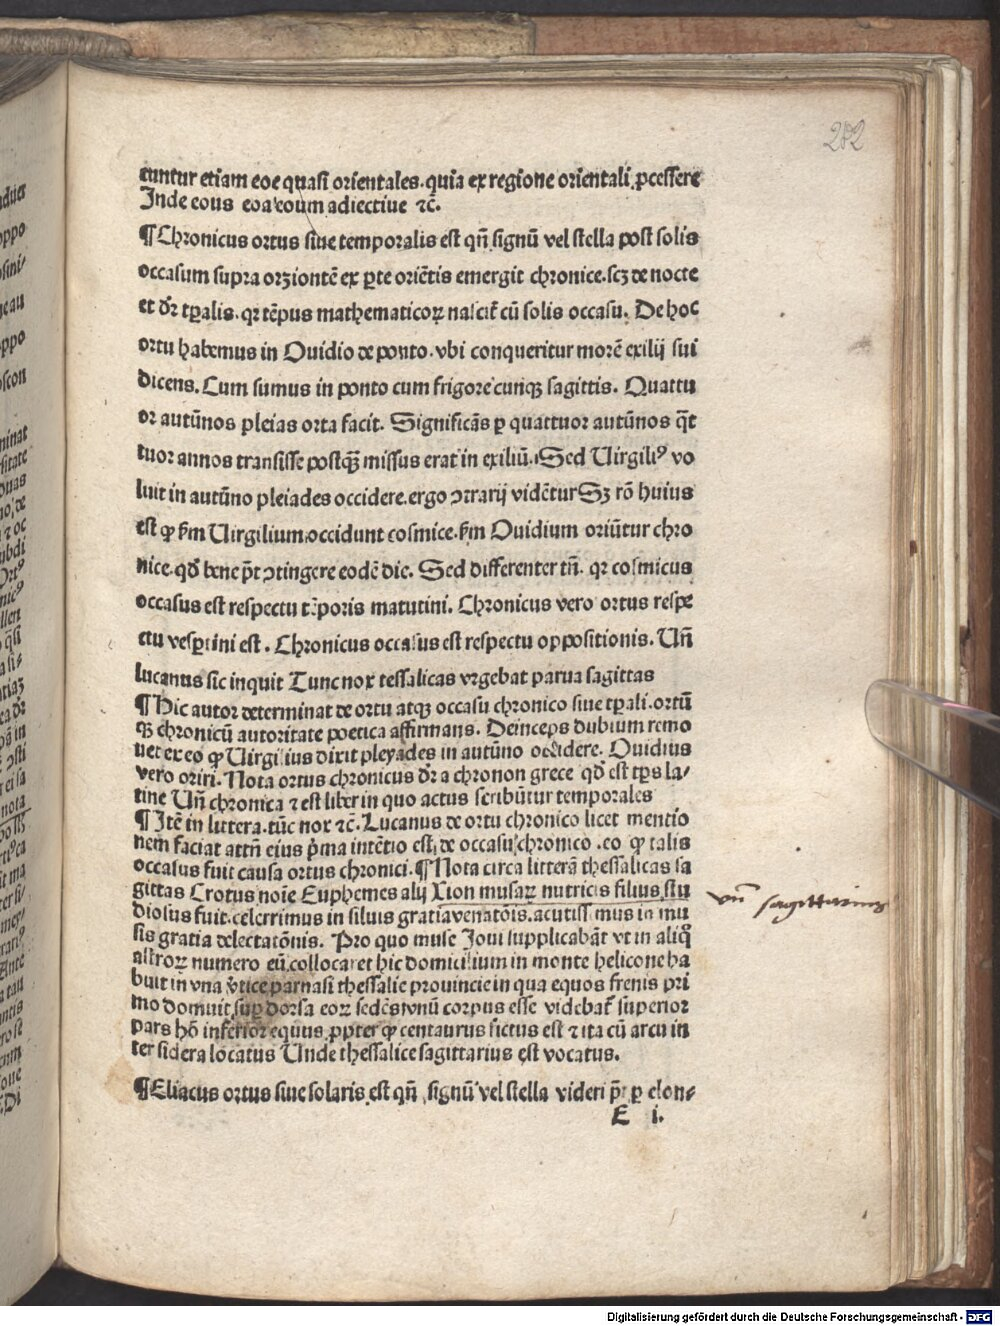 202
cuntur etiam eoe quasi orientales. quia ex regione orientali ꝓcessere
Inde eous eoa eoum adiectiue ⁊c̄.
¶ Chronicus ortus siue temporalis est qn̄ signū vel stella post solis
occasum supra orʒiontē ex ꝑte oriētis emergit chronice. scʒ de nocte
et dr̄ tꝑalis. qꝛ tēpus mathematicoꝝ nascit̄ cū solis occasu. De hoc
ortu habemus in Ouidio de ponto. vbi conqueritur morē exilij sui
dicens. Cum sumus in ponto cum frigore cunqꝫ sagittis. Quattu
or autūnos pleias orta facit. Significās ꝑ quattuor autūnos q̄t
tuor annos transisse postqꝫ̄ missus erat in exiliū. Sed Uirgiliꝰ vo
luit in autūno pleiades occidere. ergo ↄtrarij vidētur Sꝫ rō huius
est ꝙ ẜm Uirgilium occidunt cosmice. ẜm Ouidium oriūtur chro
nice. qd̄ bene pōt ↄtingere eodē die. Sed differenter tn̄. qꝛ cosmicus
occasus est respectu tēporis matutini. Chronicus vero ortus respe
ctu vesꝑtini est. Chronicus occasus est respectu oppositionis. Un̄
lucanus sic inquit Tunc nox tessalicas vrgebat parua sagittas
¶ Hic autor determinat de ortu atqꝫ occasu chronico siue tꝑali. ortū
qꝫ chronicū autoritate poetica affirmans. Deinceps dubium remo
uet ex eo ꝙ Uirgilius dixit pleyades in autūno occidere. Ouidius
vero oriri. Nota ortus chronicus dr̄ a chronon grece qd̄ est tp̄s la⸗
tine Un̄ chronica ⁊ est liber in quo actus scribūtur temporales
¶ Itē in littera. tūc nox ⁊c̄. Lucanus de ortu chronico licet mentio
nem faciat attn̄ eius p̄ma intētio est de occasu chronico. eo ꝙ talis
occasus fuit causa ortus chronici. ¶ Nota circa litterā thessalicas sa
gittas Crotus noīe Euphemes alij Xion musaꝝ nutricis filius stu
diosus fuit. celerrimus in siluis gratia venatōis. acutissimus in mu
sis gratia delectatōnis. Pro quo muse Joui supplicabāt vt in aliq̄
astroꝝ numero eū collocaret hic domicilium in monte helicone ha
buit in vna v̄tice parnasi thessalie prouincie in qua equos frenis pri
mo domuit suꝑ dorsa eoꝝ sedēs vnū corpus esse videbat̄ superior
pars hō inferior equus. ꝓpter ꝙ centaurus fictus est ⁊ ita cū arcu in
ter sidera locatus Unde thessalice sagittarius est vocatus.
¶ Eliacus ortus siue solaris est qn̄ signū vel stella videri pōt ꝑ elon⸗
E i.
vn̄ sagittarius
Digitalisierung gefördert durch die Deutsche Forschungsgemeinschaft - DFG